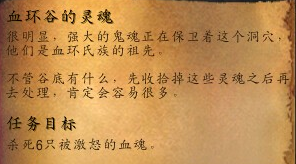 血环谷的灵魂
很明显，强大的鬼魂正在保卫着这个洞穴，
他们是血环氏族的祖先。
不管谷底有什么，先收拾掉这些灵魂之后再
去处理，肯定会容易很多。
任务目标
杀死6只被激怒的血魂。